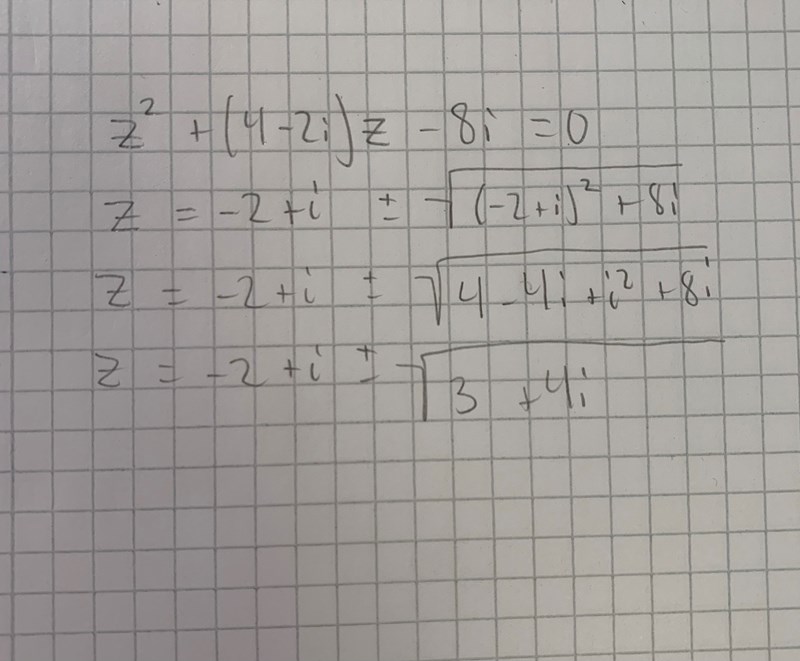 z² + (4-2i)z - 8i = 0
z = -2+i ± √((-2+i)² + 8i)
z = -2+i ± √(4-4i+i²+8i)
z = -2+i ± √(3+4i)